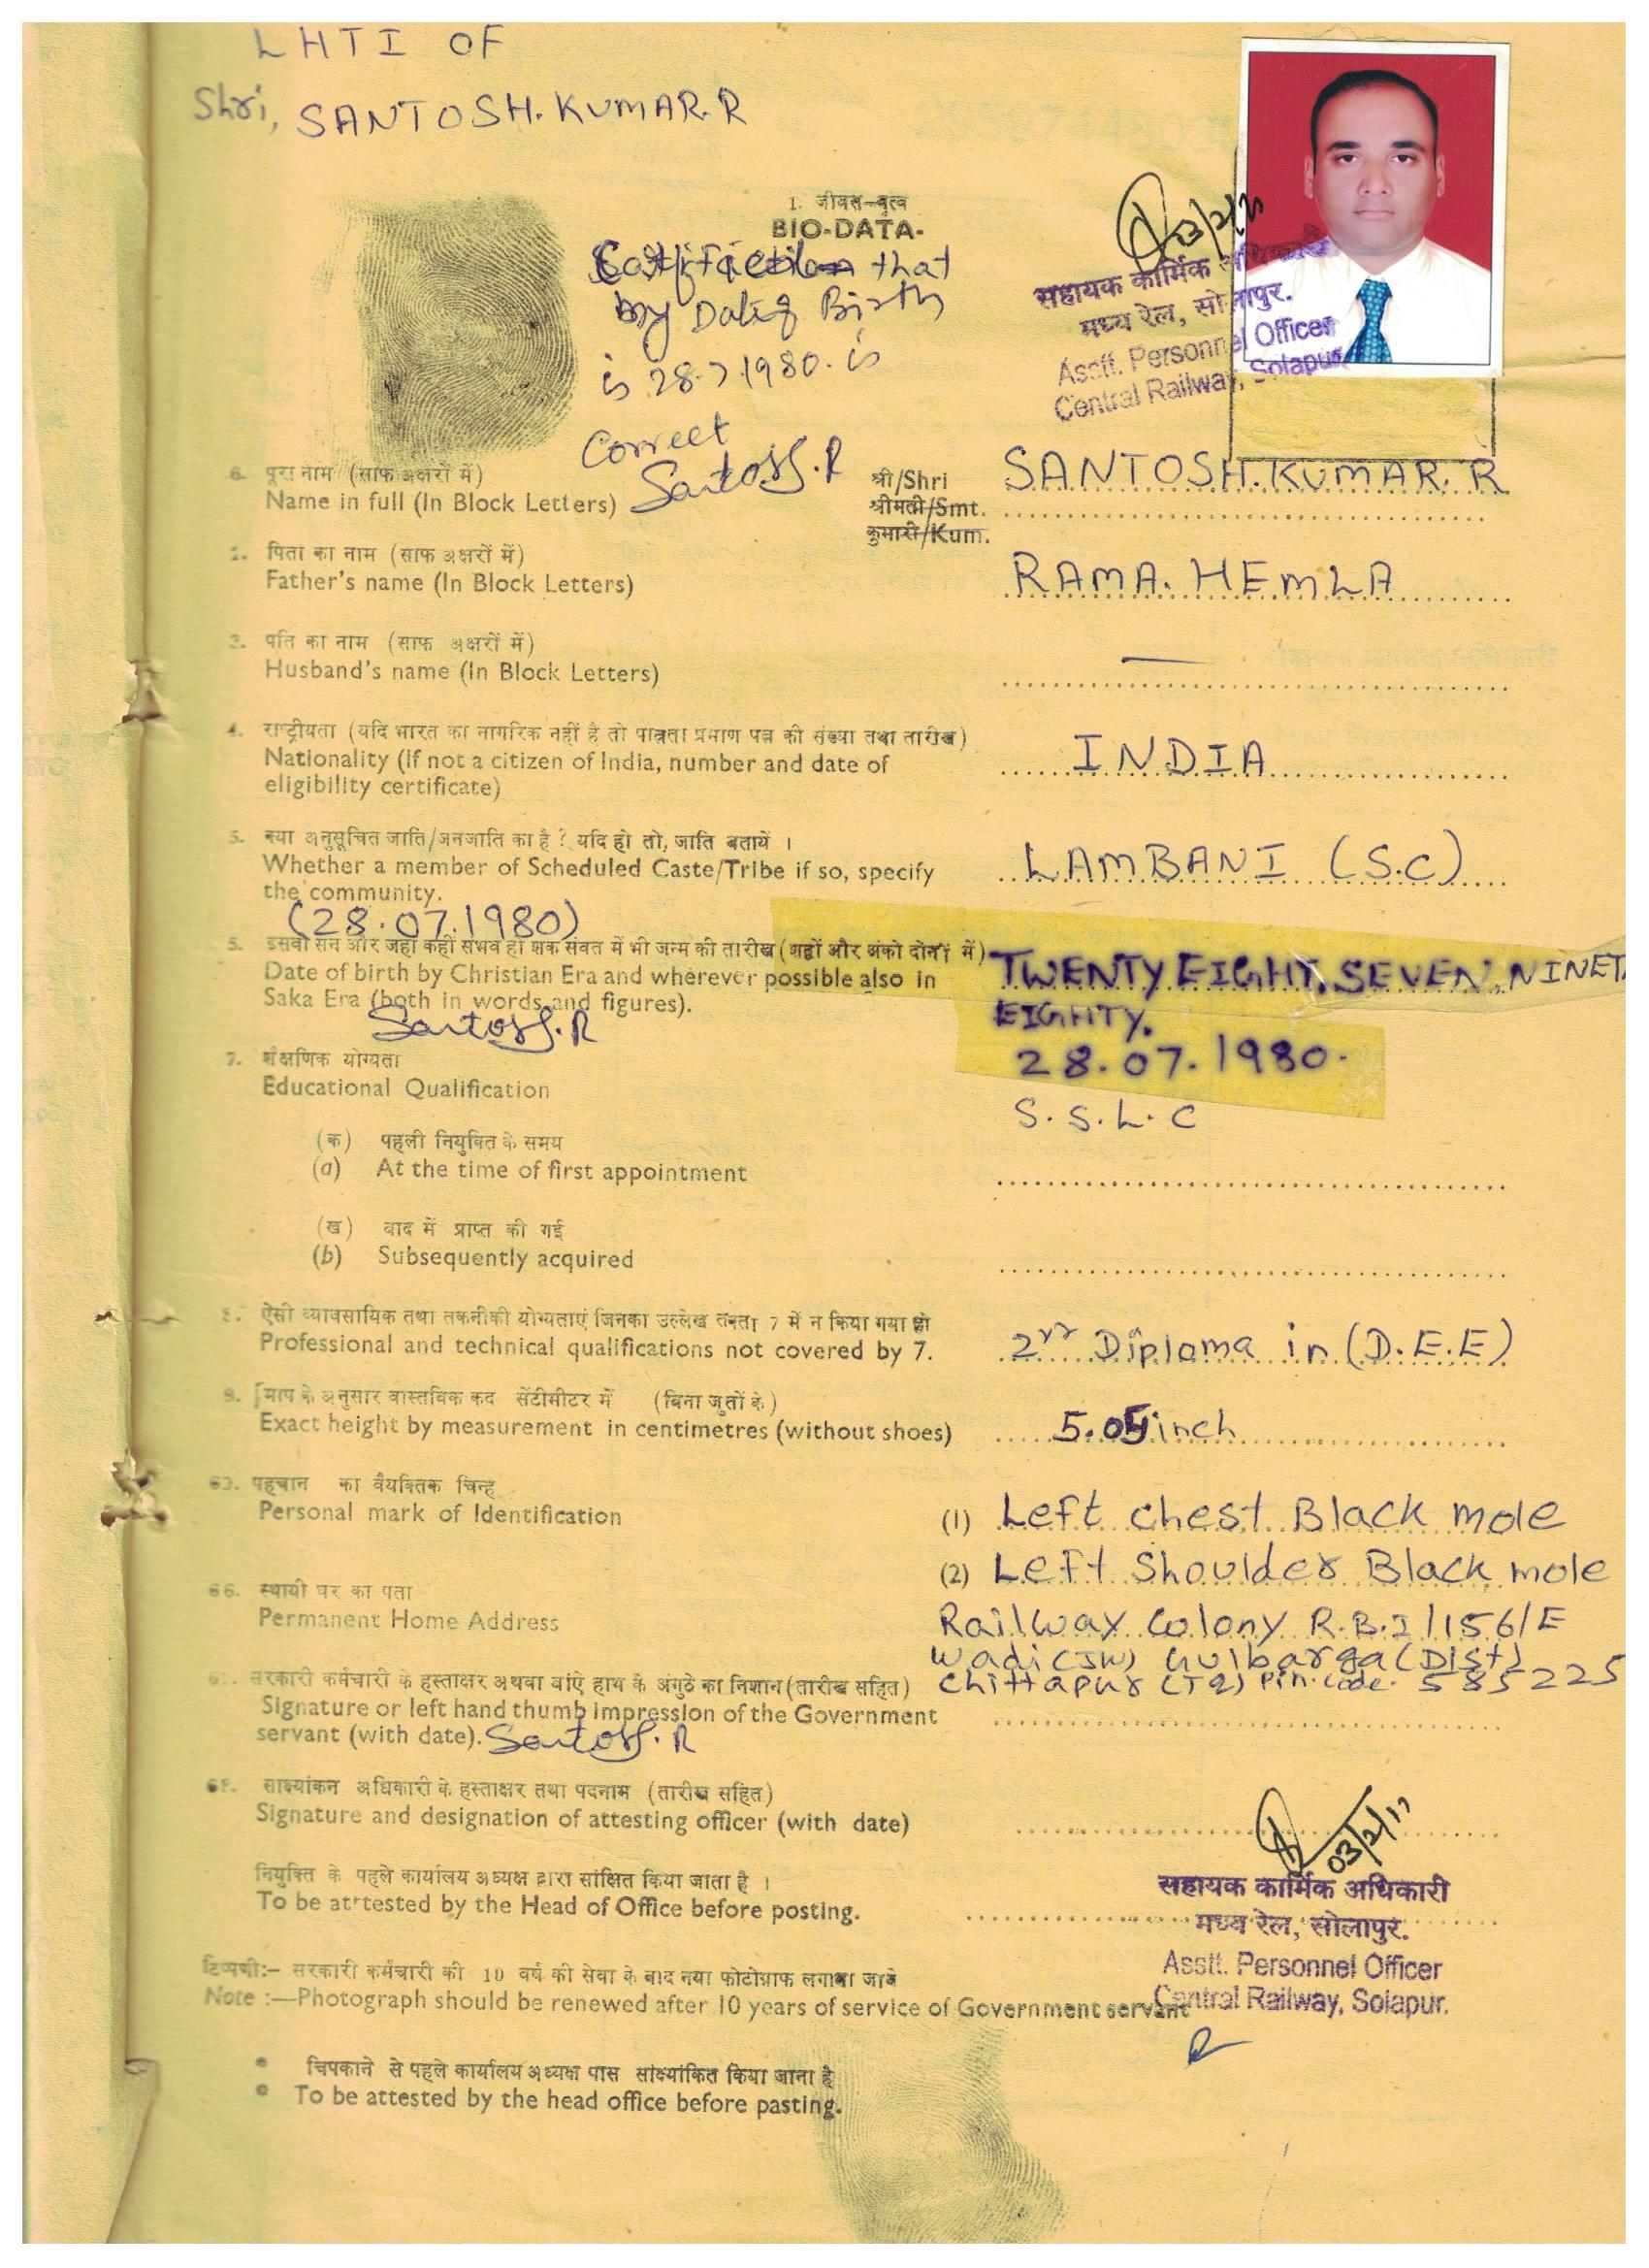 LHTI OF
Shri, SANTOSH.KUMAR.R
1. जीवत-वृत्व
BIO-DATA-
that
my Date of Birth
is 28.7.1980. is
Correct
Santosh.R
03/2/11
सहायक कार्मिक अधिकारी
मध्य रेल, सोलापुर.
Asstt. Personnel Officer
Central Railway, Solapur
6. पूरा नाम (साफ अक्षरों में)
Name in full (In Block Letters)
श्री/Shri SANTOSH.KUMAR.R
श्रीमती/Smt.
कुमारी/Kum.
2. पिता का नाम (साफ अक्षरों में)
Father's name (In Block Letters) RAMA.HEMLA
3. पति का नाम (साफ अक्षरों में)
Husband's name (In Block Letters) —
4. राष्ट्रीयता (यदि भारत का नागरिक नहीं है तो पात्रता प्रमाण पत्र की संख्या तथा तारीख)
Nationality (if not a citizen of India, number and date of INDIA
eligibility certificate)
5. क्या अनुसूचित जाति/जनजाति का है ? यदि हो तो, जाति बतायें ।
Whether a member of Scheduled Caste/Tribe if so, specify LAMBANI (S.C)
the community.
(28.07.1980)
5. इसवी सन और जहाँ कहीं संभव हो शक संवत में भी जन्म की तारीख (शब्दों और अंको दोनों में)
Date of birth by Christian Era and wherever possible also in TWENTY EIGHT. SEVEN. NINET
Saka Era (both in words and figures). EIGHTY.
Santosh.R
28.07.1980.
7. शैक्षणिक योग्यता
Educational Qualification
S.S.L.C
(क) पहली नियुक्ति के समय
(a) At the time of first appointment
(ख) बाद में प्राप्त की गई
(b) Subsequently acquired
8. ऐसी व्यावसायिक तथा तकनीकी योग्यताएं जिनका उल्लेख 7 में न किया गया हो
Professional and technical qualifications not covered by 7. 2yr Diploma in (D.E.E)
9. माप के अनुसार वास्तविक कद सेंटीमीटर में (बिना जुतों के)
Exact height by measurement in centimetres (without shoes) 5.05inch
60. पहचान का वैयक्तिक चिन्ह
Personal mark of Identification (1) Left chest Black mole
(2) Left Shoulder Black mole
66. स्थायी घर का पता
Permanent Home Address Railway Colony R.B.I/156/E
Wadi (JW) Gulbarga (Dist)
Chittapur (TQ) Pin.Code. 585225
सरकारी कर्मचारी के हस्ताक्षर अथवा बांऐ हाथ के अंगुठे का निशान (तारीख सहित)
Signature or left hand thumb impression of the Government
servant (with date). Santosh.R
68. साक्ष्यांकन अधिकारी के हस्ताक्षर तथा पदनाम (तारीख सहित)
Signature and designation of attesting officer (with date)
03/2/11
नियुक्ति के पहले कार्यालय अध्यक्ष द्वारा सांक्षित किया जाता है ।
To be attested by the Head of Office before posting.
सहायक कार्मिक अधिकारी
मध्य रेल, सोलापुर.
Asstt. Personnel Officer
Central Railway, Solapur.
टिप्पणी:- सरकारी कर्मचारी की 10 वर्ष की सेवा के बाद नया फोटोग्राफ लगाया जावे
Note :—Photograph should be renewed after 10 years of service of Government servant
• चिपकाने से पहले कार्यालय अध्यक्ष पास सांक्ष्यांकित किया जाना है
• To be attested by the head office before pasting.